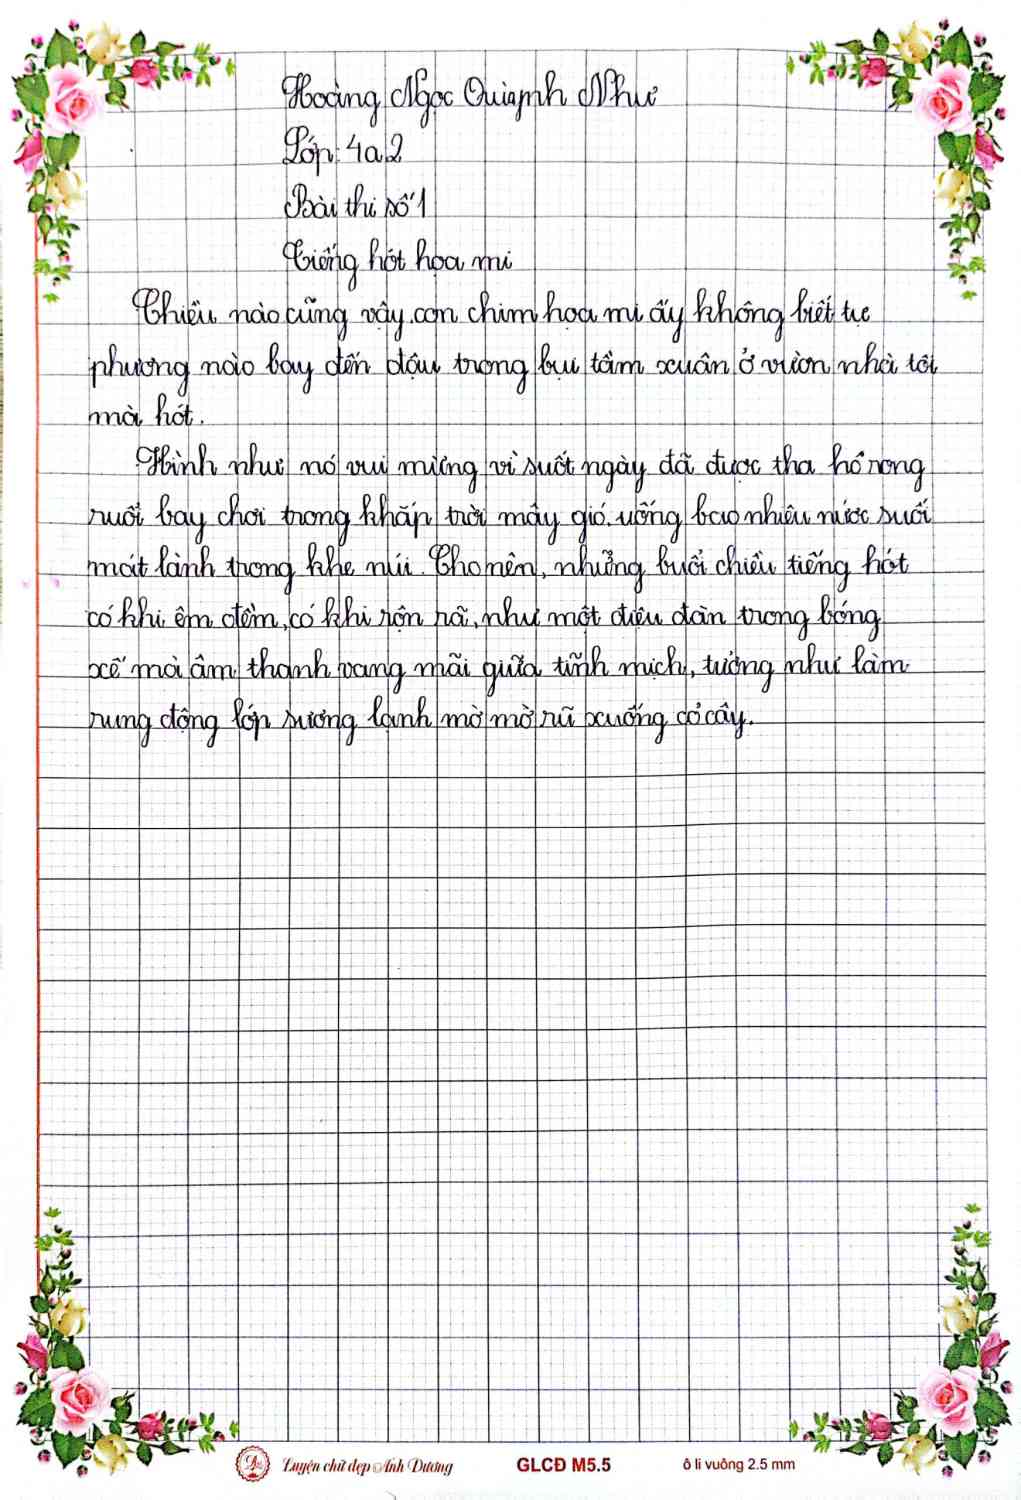 Hoàng Ngọc Quỳnh Như
Lớp: 4a2
Bài thi số 1
Tiếng hót họa mi
Chiều nào cũng vậy, con chim họa mi ấy không biết từ
phương nào bay đến đậu trong bụi tầm xuân ở vườn nhà tôi
mà hót.
Hình như nó vui mừng vì suốt ngày đã được tha hồ rong
ruổi bay chơi trong khắp trời mây gió, uống bao nhiêu nước suối
mát lành trong khe núi. Cho nên, những buổi chiều tiếng hót
có khi êm đềm, có khi rộn rã, như một điệu đàn trong bóng
xế mà âm thanh vang mãi giữa tĩnh mịch, tưởng như làm
rung động lớp sương lạnh mờ mờ rũ xuống cỏ cây.
Luyện chữ đẹp Ánh Dương
GLCĐ M5.5
ô li vuông 2.5 mm